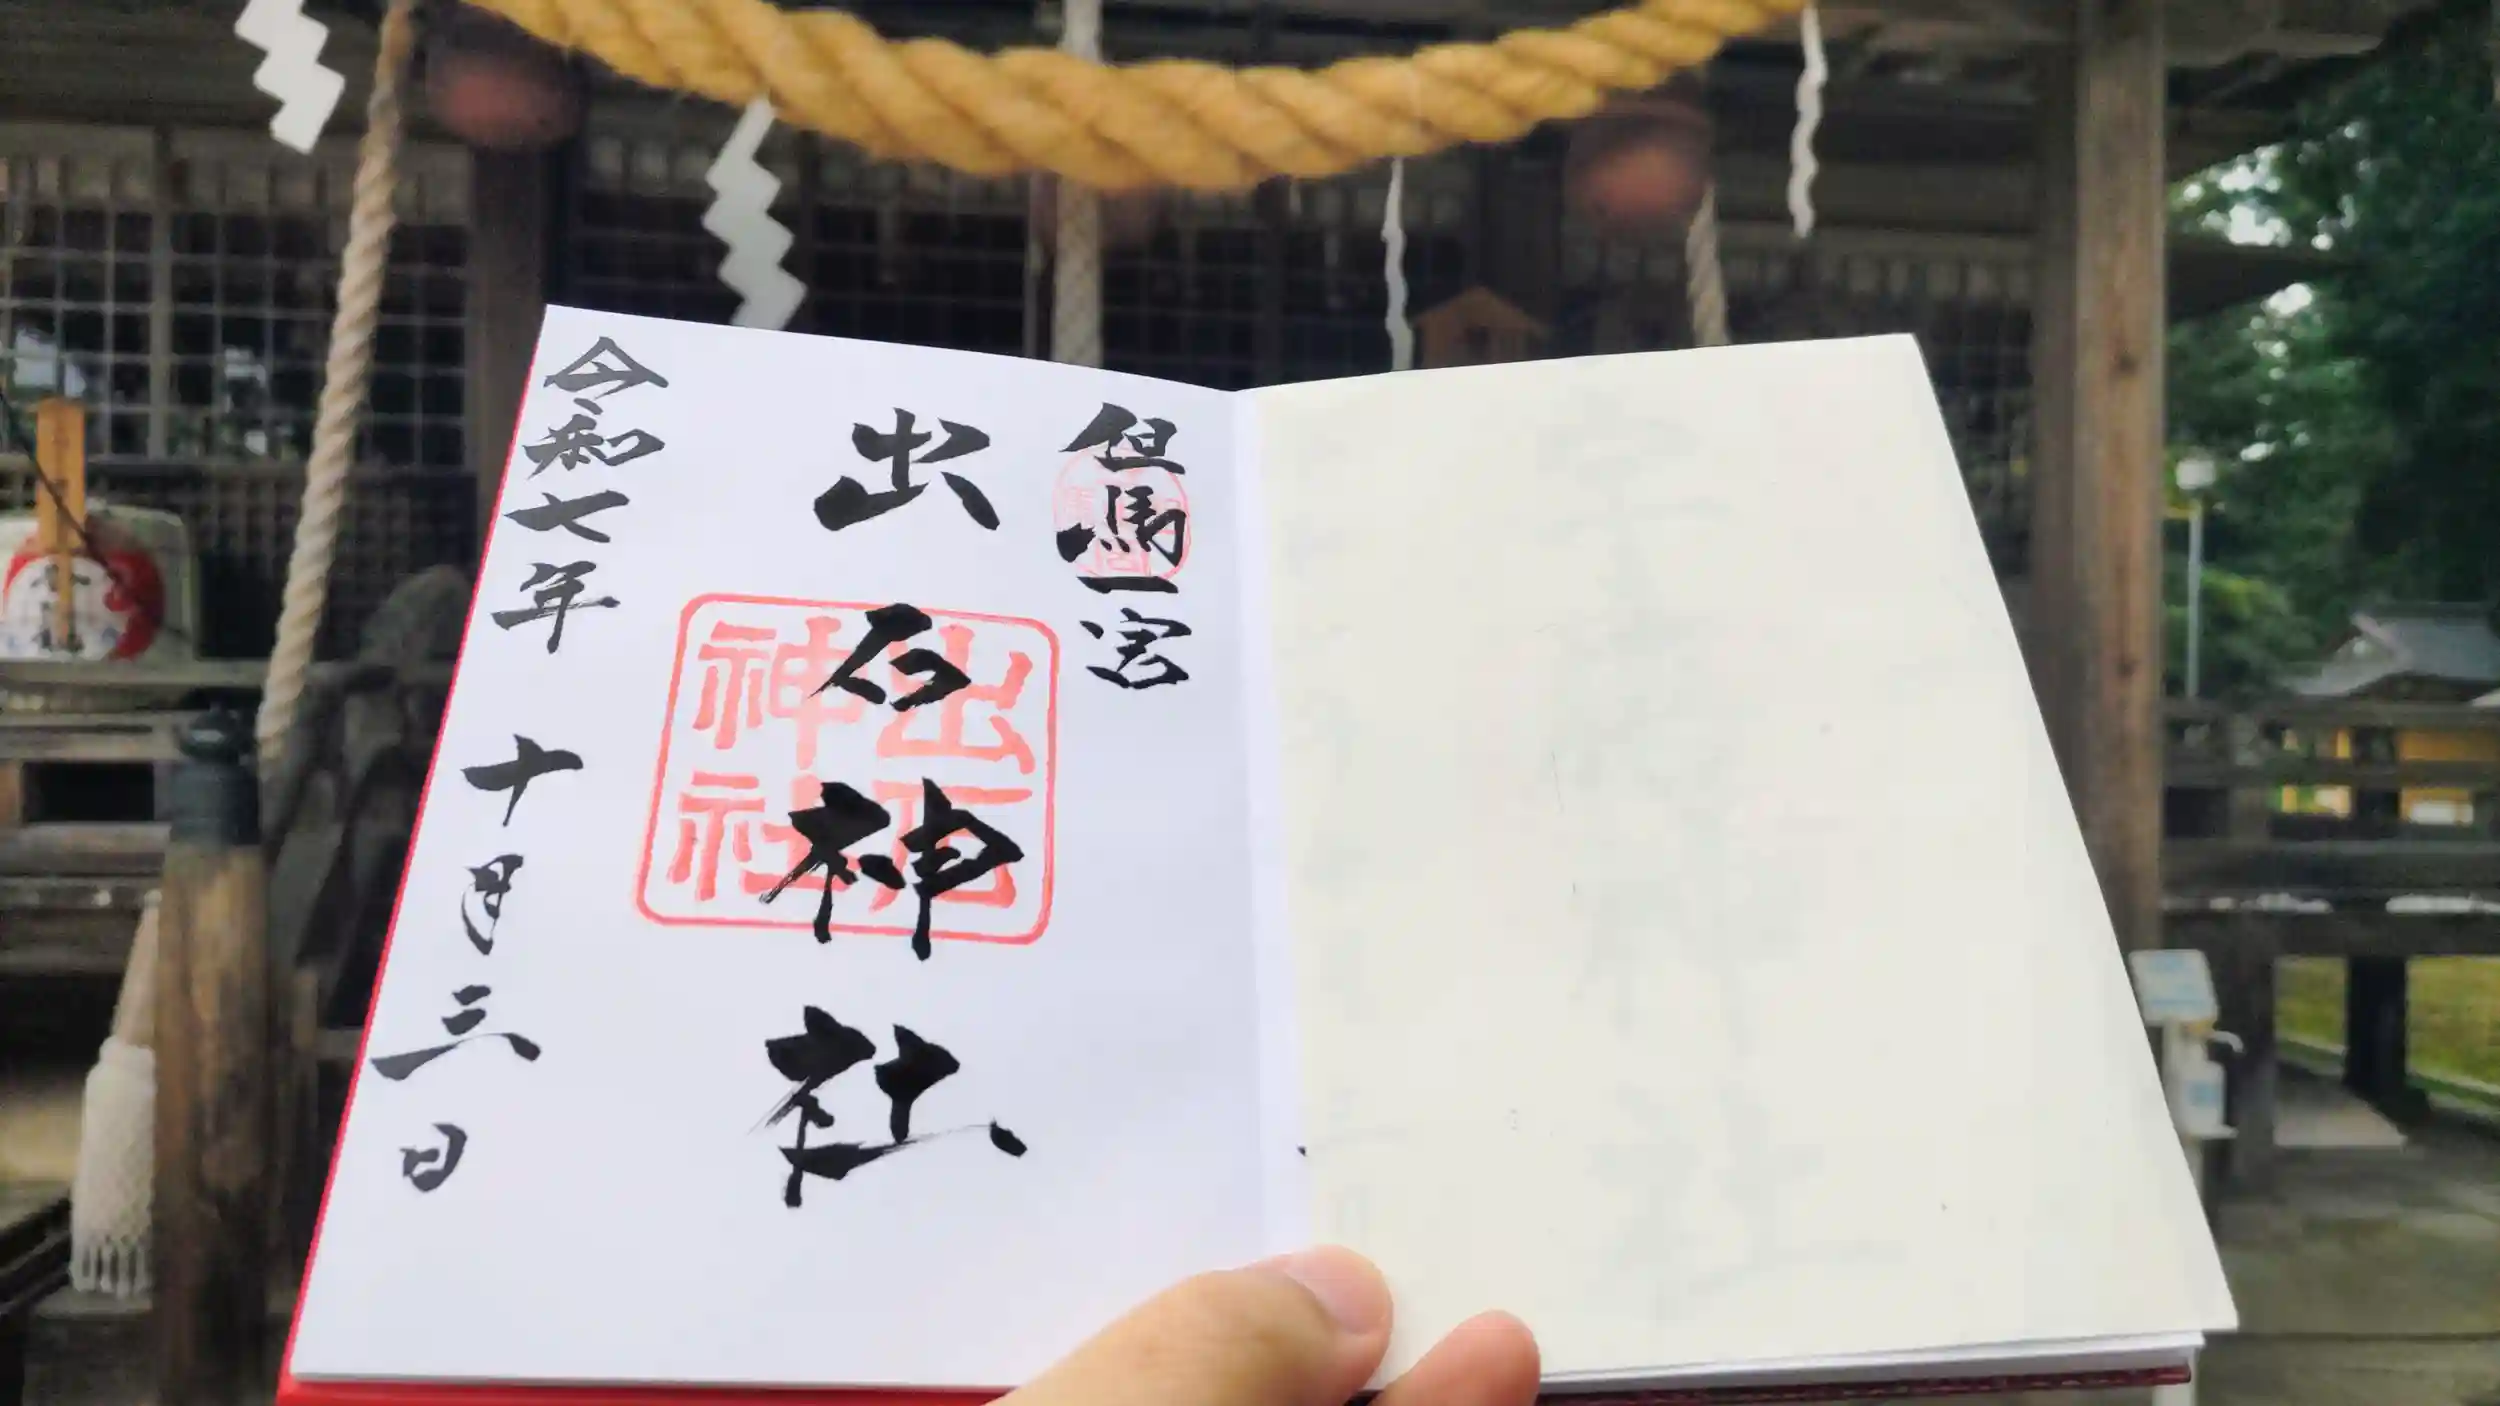 但馬一宮
出石神社
出石神社
令和七年 十月三日